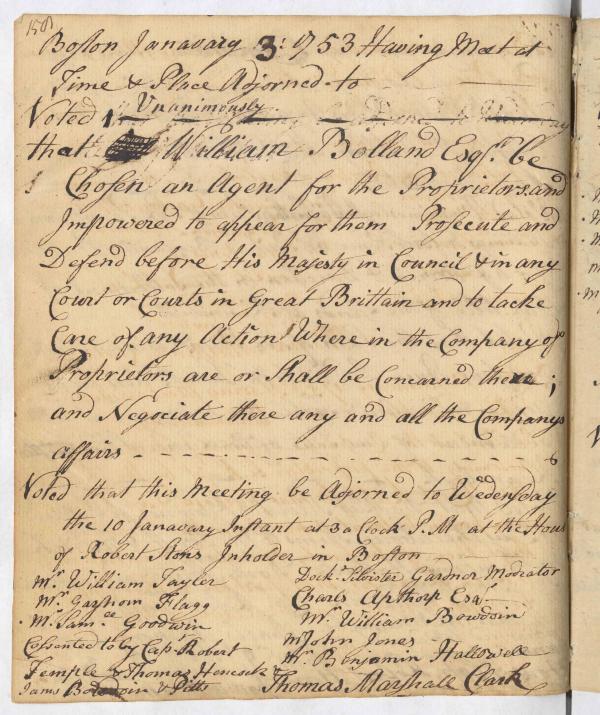 150
Boston Janavary 3: 1753 Having Meet at
Time & Place Adjorned to
Unanimously
Voted
that William Bolland Esqr. be
Chosen an Agent for the Proprietors and
Impowered to appear for them Prosecute and
Defend before His Majesty in Council & in any
Court or Courts in Great Brittain and to tacke
Care of any Action Where in the Company of
Proprietors are or Shall be Concearned there;
and Negociate there any and all the Companys
affairs
Voted that this Meeting be Adjorned to Wedensday
the 10 Janavary Instant at 3 a Clock P.M at the Hous
of Robert Stons Inholder in Boston
Mr. William Tayler
Mr. Garshom Flagg
Mr. Samll Goodwin
Cosented to by Capt. Robert
Temple & Thomas Hencock &
Jams Bowdoin & Pitts
Dockr. Silvister Gardner Modrator
Charls Apthorp Esqr.
Mr. William Bowdoin
Mr John Jones
Mr. Benjamin Hallowell
Thomas Marshall Clark